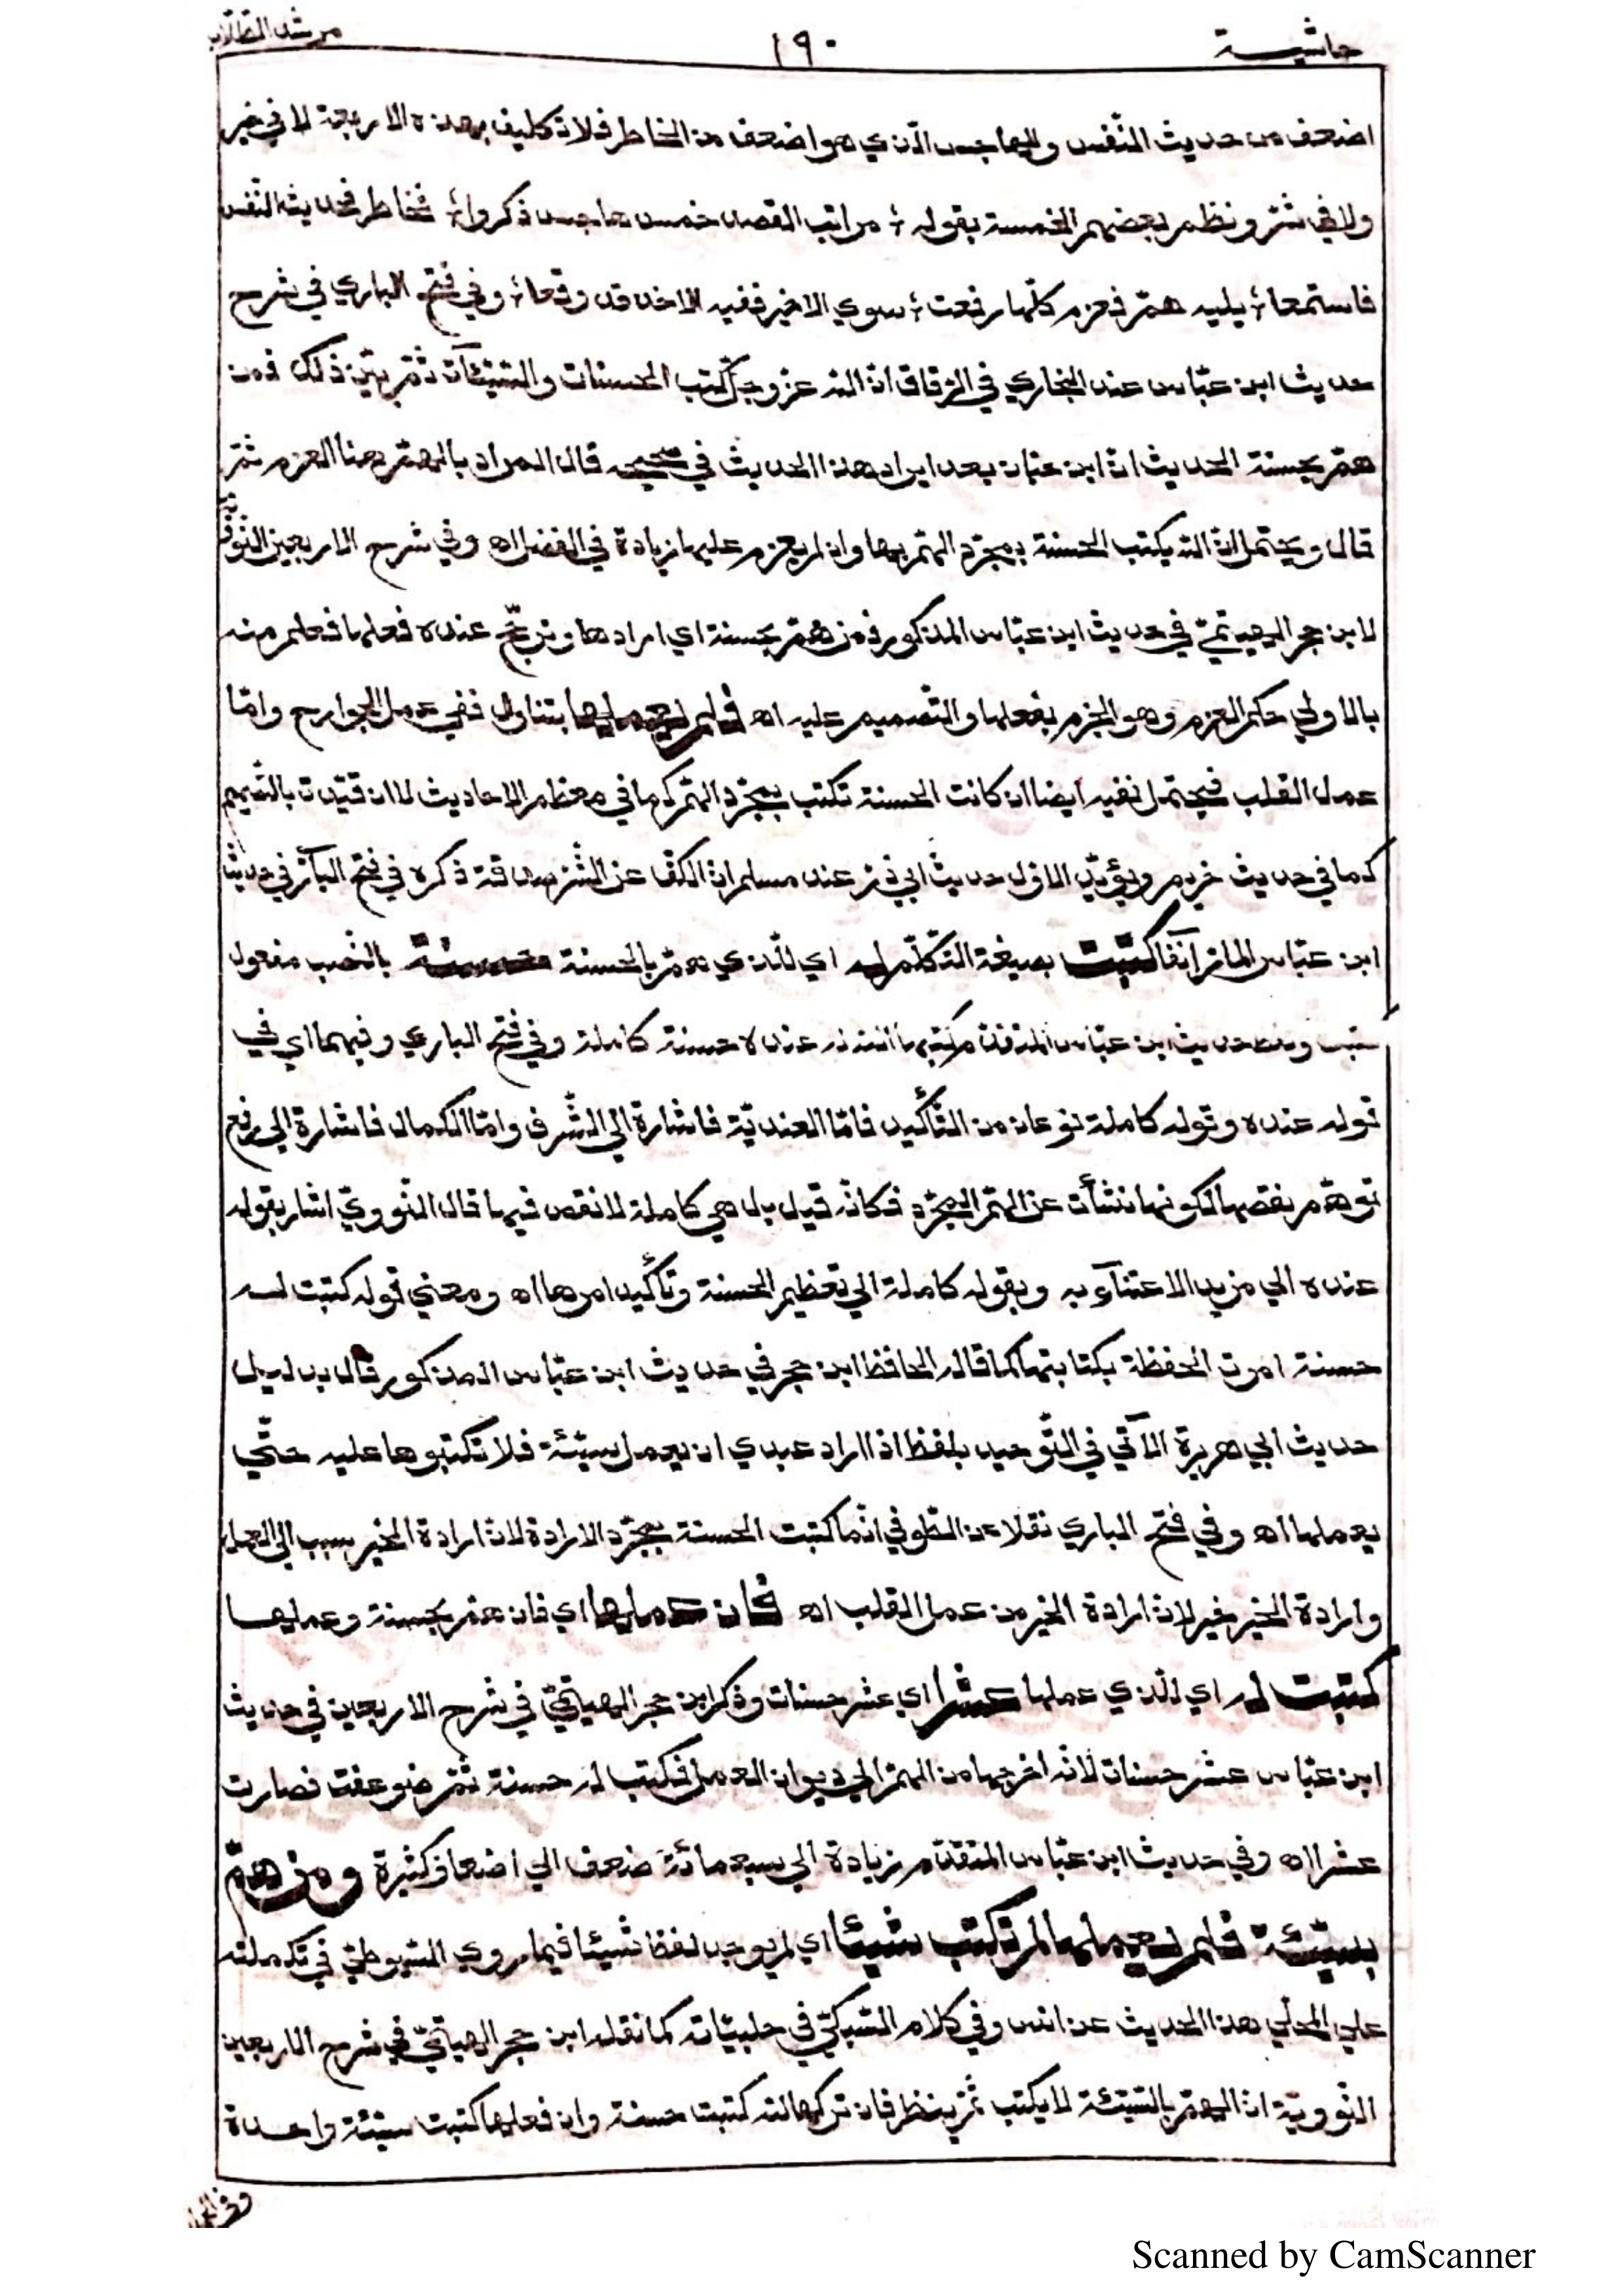 حاشيــة ١٩٠ مرشد الطلاب
اضعف من حديث النّفس والهاجس الّذي هو اضعف من الخاطر فلا تكليف بهذه الاربعة لا في خير
ولا في شرّ ونظم بعضهم الخمسة بقوله ؛ مراتب القصد خمس هاجس ذكروا ؛ فخاطر فحديث النّفس
فاستمعا ؛ يليه همّ فعزم كلّها رفعت ؛ سوي الاخير ففيه الاخذ قد وقعا ؛ وفي فتح الباري في شرح
حديث ابن عبّاس عند البخاري في الرقاق انّ الله عز وجلّ كتب الحسنات والسّيّئآت ثمّ بيّن ذلك فمن
همّ بحسنة الحديث انّ ابن حبّان بعد ايراد هذا الحديث في صحيحه قال المراد بالهمّ هنا العزم ثمّ
قال ويحتمل انّ الله يكتب الحسنة بمجرّد الهمّ بها وان لم يعزم عليها زيادة في الفضل اه وفي شرح الاربعين النّووّية
لابن حجر الهيتميّ في حديث ابن عبّاس المذكور فمن همّ بحسنة اي ارادها وترجّح عنده فعلها فعلم منه
بالاولي حكم العزم وهو الجزم بفعلها والتّصميم عليه اه فلم يعملها يتناول نفي عمل الجوارح وامّا
عمل القلب فيحتمل نفيه ايضا ان كانت الحسنة تكتب بمجرّد الهمّ كما في معظم الاحاديث لا ان قيّدت بالتّصميم
كما في حديث خريم ويؤيّد الاوّل حديث ابي ذرّ عند مسلم انّ الكفّ عن الشّرّ صدقة ذكره في فتح البآري في حديث
ابن عبّاس المارّ آنفا كتبت بصيغة التّكلّم له اي للّذي همّ بالحسنة حسنة بالنّصب مفعول
كتبت وفي حديث ابن عبّاس المتقدّم كتبها الله له عنده حسنة كاملة وفي فتح الباري وفيهما اي في
قوله عنده وقوله كاملة نوعان من التّأكيد فامّا العنديّة فاشارة الي الشّرف وامّا الكمال فاشارة الي رفع
توهّم نقصها لكونها نشأت عن الهمّ المجرّد فكانّه قيل بل هي كاملة لا نقص فيها قال النّوويّ اشار بقوله
عنده الي مزيد الاعتنآء به وبقوله كاملة الي تعظيم الحسنة وتأكيد امرها اه ومعني قوله كتبت له
حسنة امرت الحفظة بكتابتها كما قاله الحافظ ابن حجر في حديث ابن عبّاس المذكور قال بدليل
حديث ابي هريرة الآتي في التّوحيد بلفظ اذا اراد عبدي ان يعمل سيّئة فلا تكتبوها عليه حتّي
يعملها اه وفي فتح الباري نقلا عن الطّوفي انّما كتبت الحسنة بمجرّد الارادة لانّ ارادة الخير سبب الي العمل
وارادة الخير خير لانّ ارادة الخير من عمل القلب اه فان عملها اي فان همّ بحسنة وعملها
كتبت له اي للّذي عملها عشرا اي عشر حسنات وذكر ابن حجر الهيتميّ في شرح الاربعين في حديث
ابن عبّاس عشر حسنات لانّه اخرجها من الهمّ الي ديوان العمل فكتب له حسنة ثمّ ضوعفت فصارت
عشرا اه وفي حديث ابن عبّاس المتقدّم زيادة الي سبعمائة ضعف الي اضعاف كثيرة ومن همّ
بسيّئة فلم يعملها لم تكتب شيئا اي لم يوجد لفظ شيئا فيما روي السّيوطيّ في تكملته
علي المحلّي هذا الحديث عن انس وفي كلام السّبكيّ في حلبيّاته كما نقله ابن حجر الهيتميّ في شرح الاربعين
النّوويّة انّ الهمّ بالسّيّئة لا يكتب ثمّ ينظر فان تركها لله كتبت حسنة وان فعلها كتبت سيّئة واحدة
Scanned by CamScanner